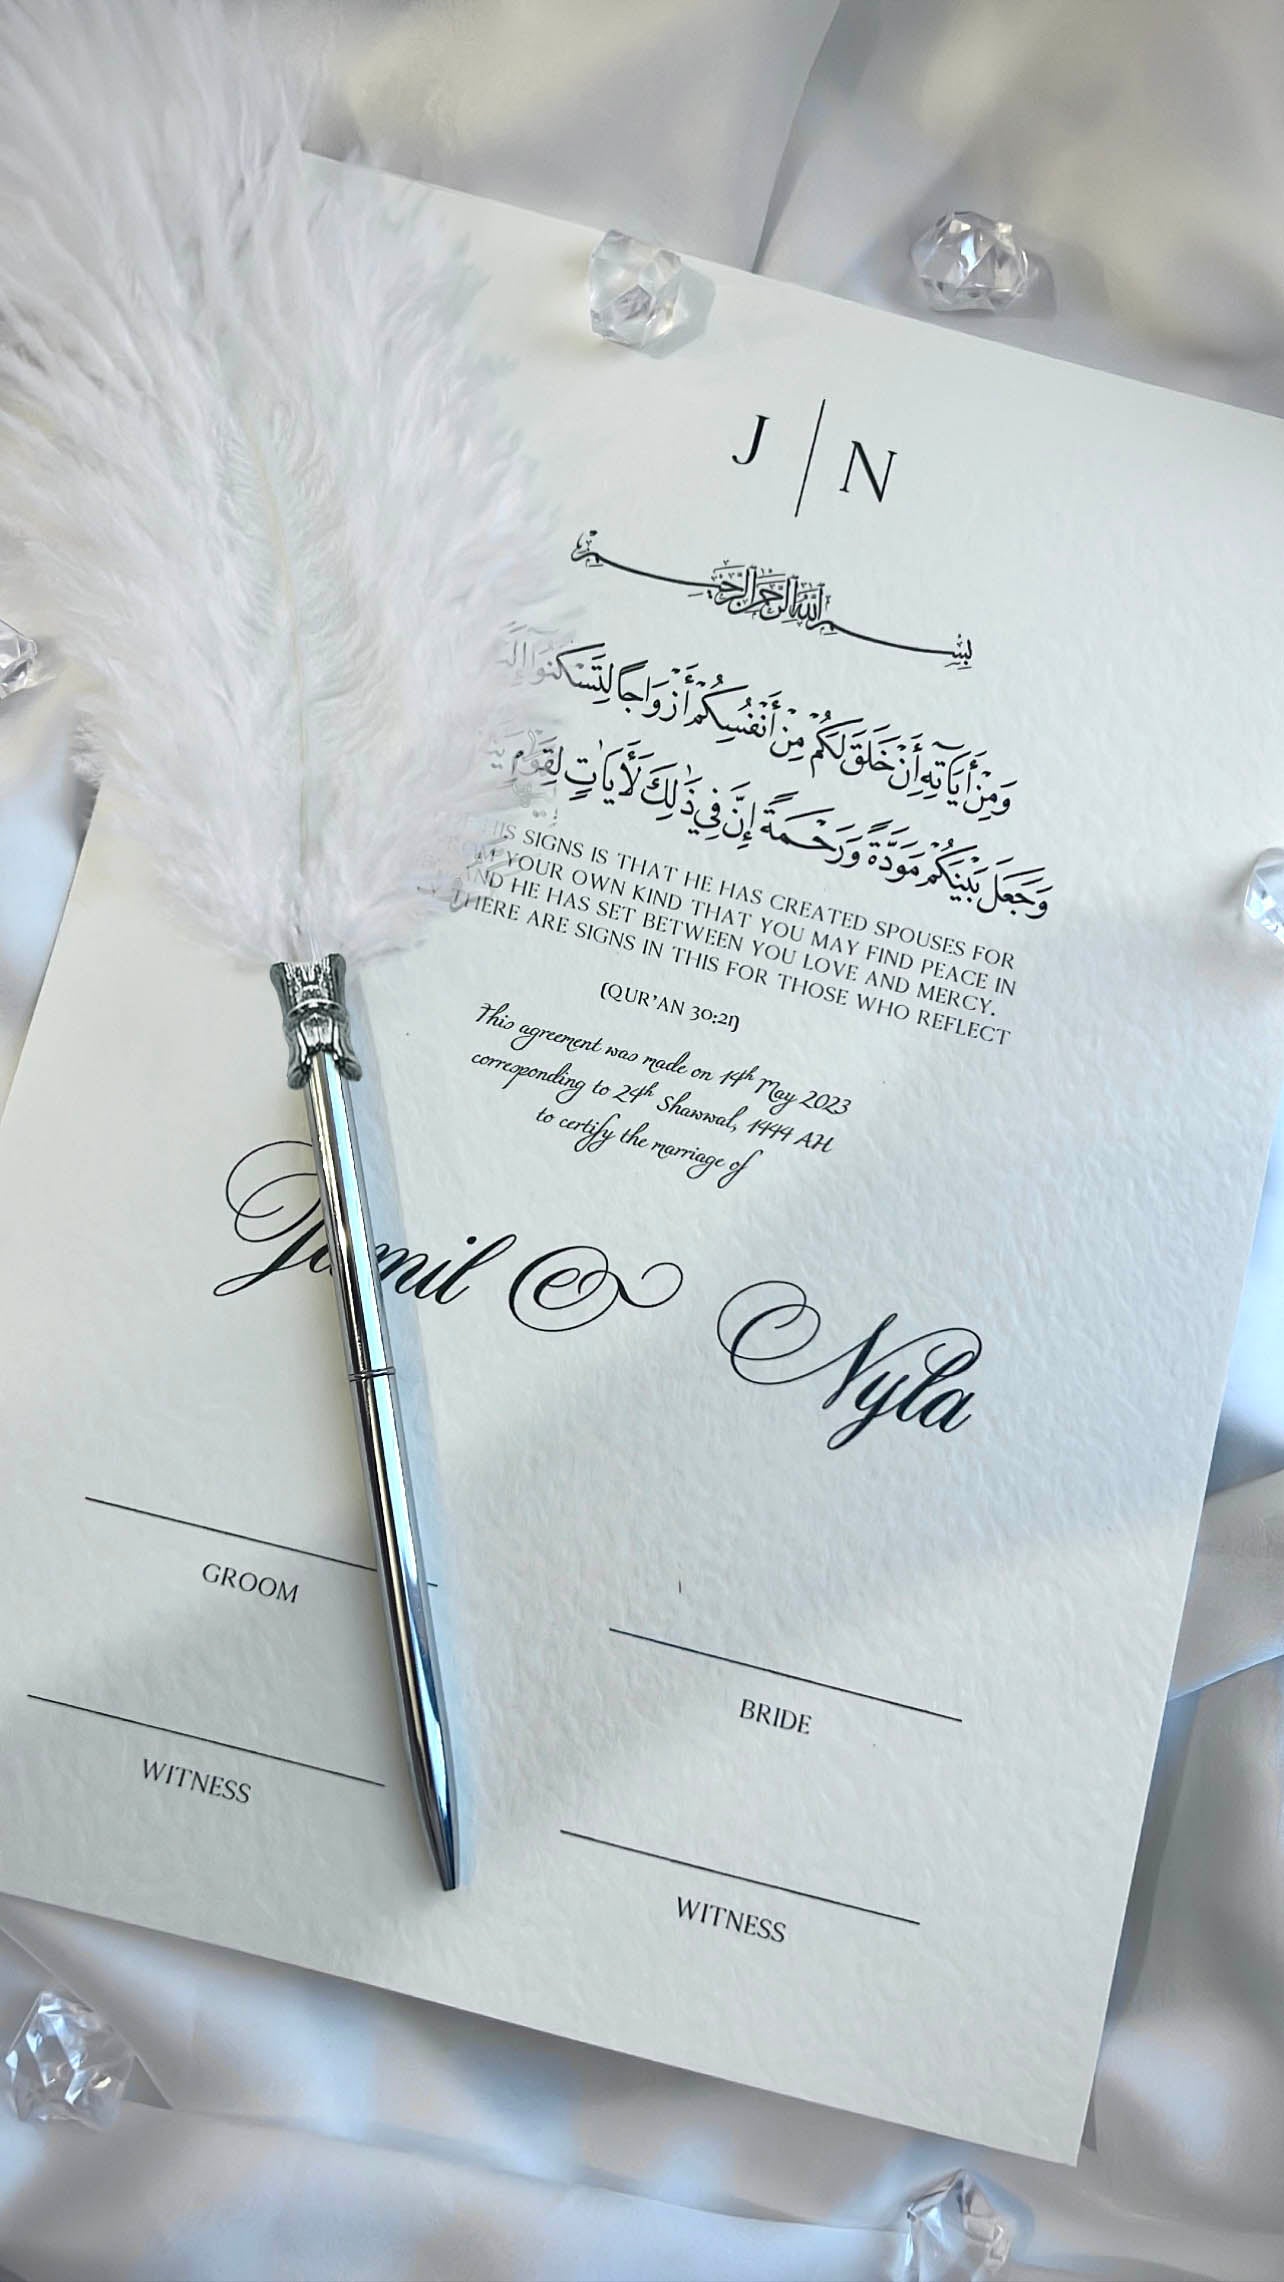 J | N
بِسْمِ اللَّهِ الرَّحْمَٰنِ الرَّحِيمِ
وَمِنْ أَيَاتِهِ أَنْ خَلَقَ لَكُم مِنْ أَنْفُسِكُمْ أَزْوَاجًا لِتَسْكُنُوا
وَجَعَلَ بَيْنَكُم مَوَدَّةً وَرَحْمَةً إِنَّ فِي ذَٰلِكَ لَأَيَاتٍ لِقَوْمٍ
SIGNS IS THAT HE HAS CREATED SPOUSES FOR
YOUR OWN KIND THAT YOU MAY FIND PEACE IN
AND HE HAS SET BETWEEN YOU LOVE AND MERCY.
THERE ARE SIGNS IN THIS FOR THOSE WHO REFLECT
(QUR'AN 30:21)
This agreement was made on 14th May 2023
corresponding to 24th Shawwal, 1444 AH
to certify the marriage of
Jamil & Nyla
GROOM
BRIDE
WITNESS
WITNESS